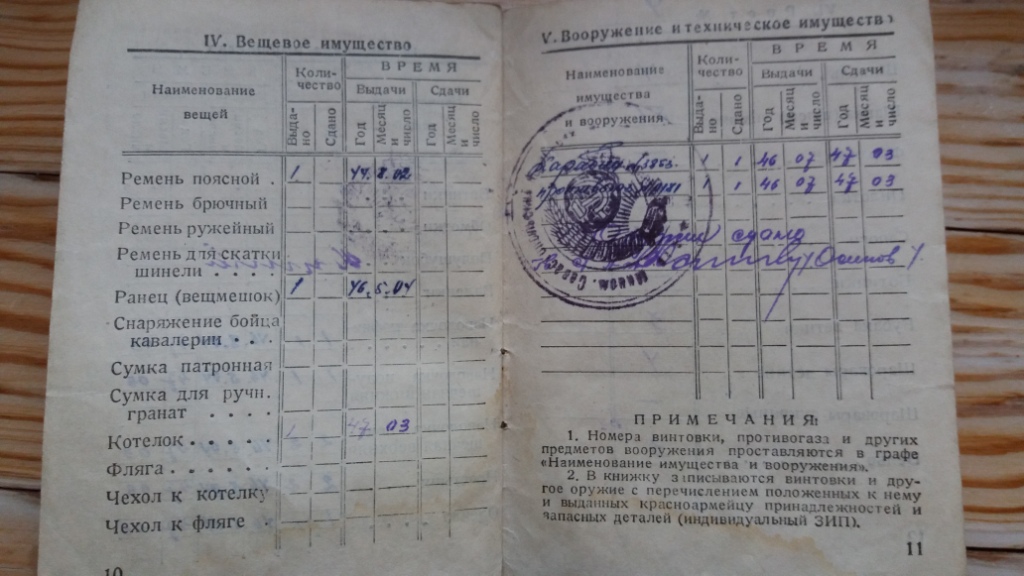 IV. Вещевое имущество
Наименование вещей
Коли-
чество
ВРЕМЯ
Выдачи
Сдачи
Выда-
но
Сдано
Год
Месяц и число
Год
Месяц и число
Ремень поясной . 1 44. 8.02
Ремень брючный
Ремень ружейный
Ремень для скатки
шинели . . . .
Ранец (вещмешок) 1 46. 5.04
Снаряжение бойца
кавалерии . . .
Сумка патронная
Сумка для ручн.
гранат . . . .
Котелок . . . . . 1 47 03
Фляга . . . . . .
Чехол к котелку
Чехол к фляге .
10
V. Вооружение и техническое имущество
Наименование
имущества
и вооружения
Коли-
чество
ВРЕМЯ
Выдачи
Сдачи
Выдано
Сдано
Год
Месяц и число
Год
Месяц и число
Карабин 1 1 46 07 47 03
1 1 46 07 47 03
сдано
Осипов
ПРИМЕЧАНИЯ:
1. Номера винтовки, противогаза и других
предметов вооружения проставляются в графе
«Наименование имущества и вооружения».
2. В книжку записываются винтовки и дру-
гое оружие с перечислением положенных к нему
и выданных красноармейцу принадлежностей и
запасных деталей (индивидуальный ЗИП).
11